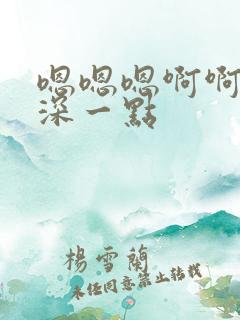 嗯嗯嗯啊啊
深一點
楊雪蘭
未经同意禁止转载